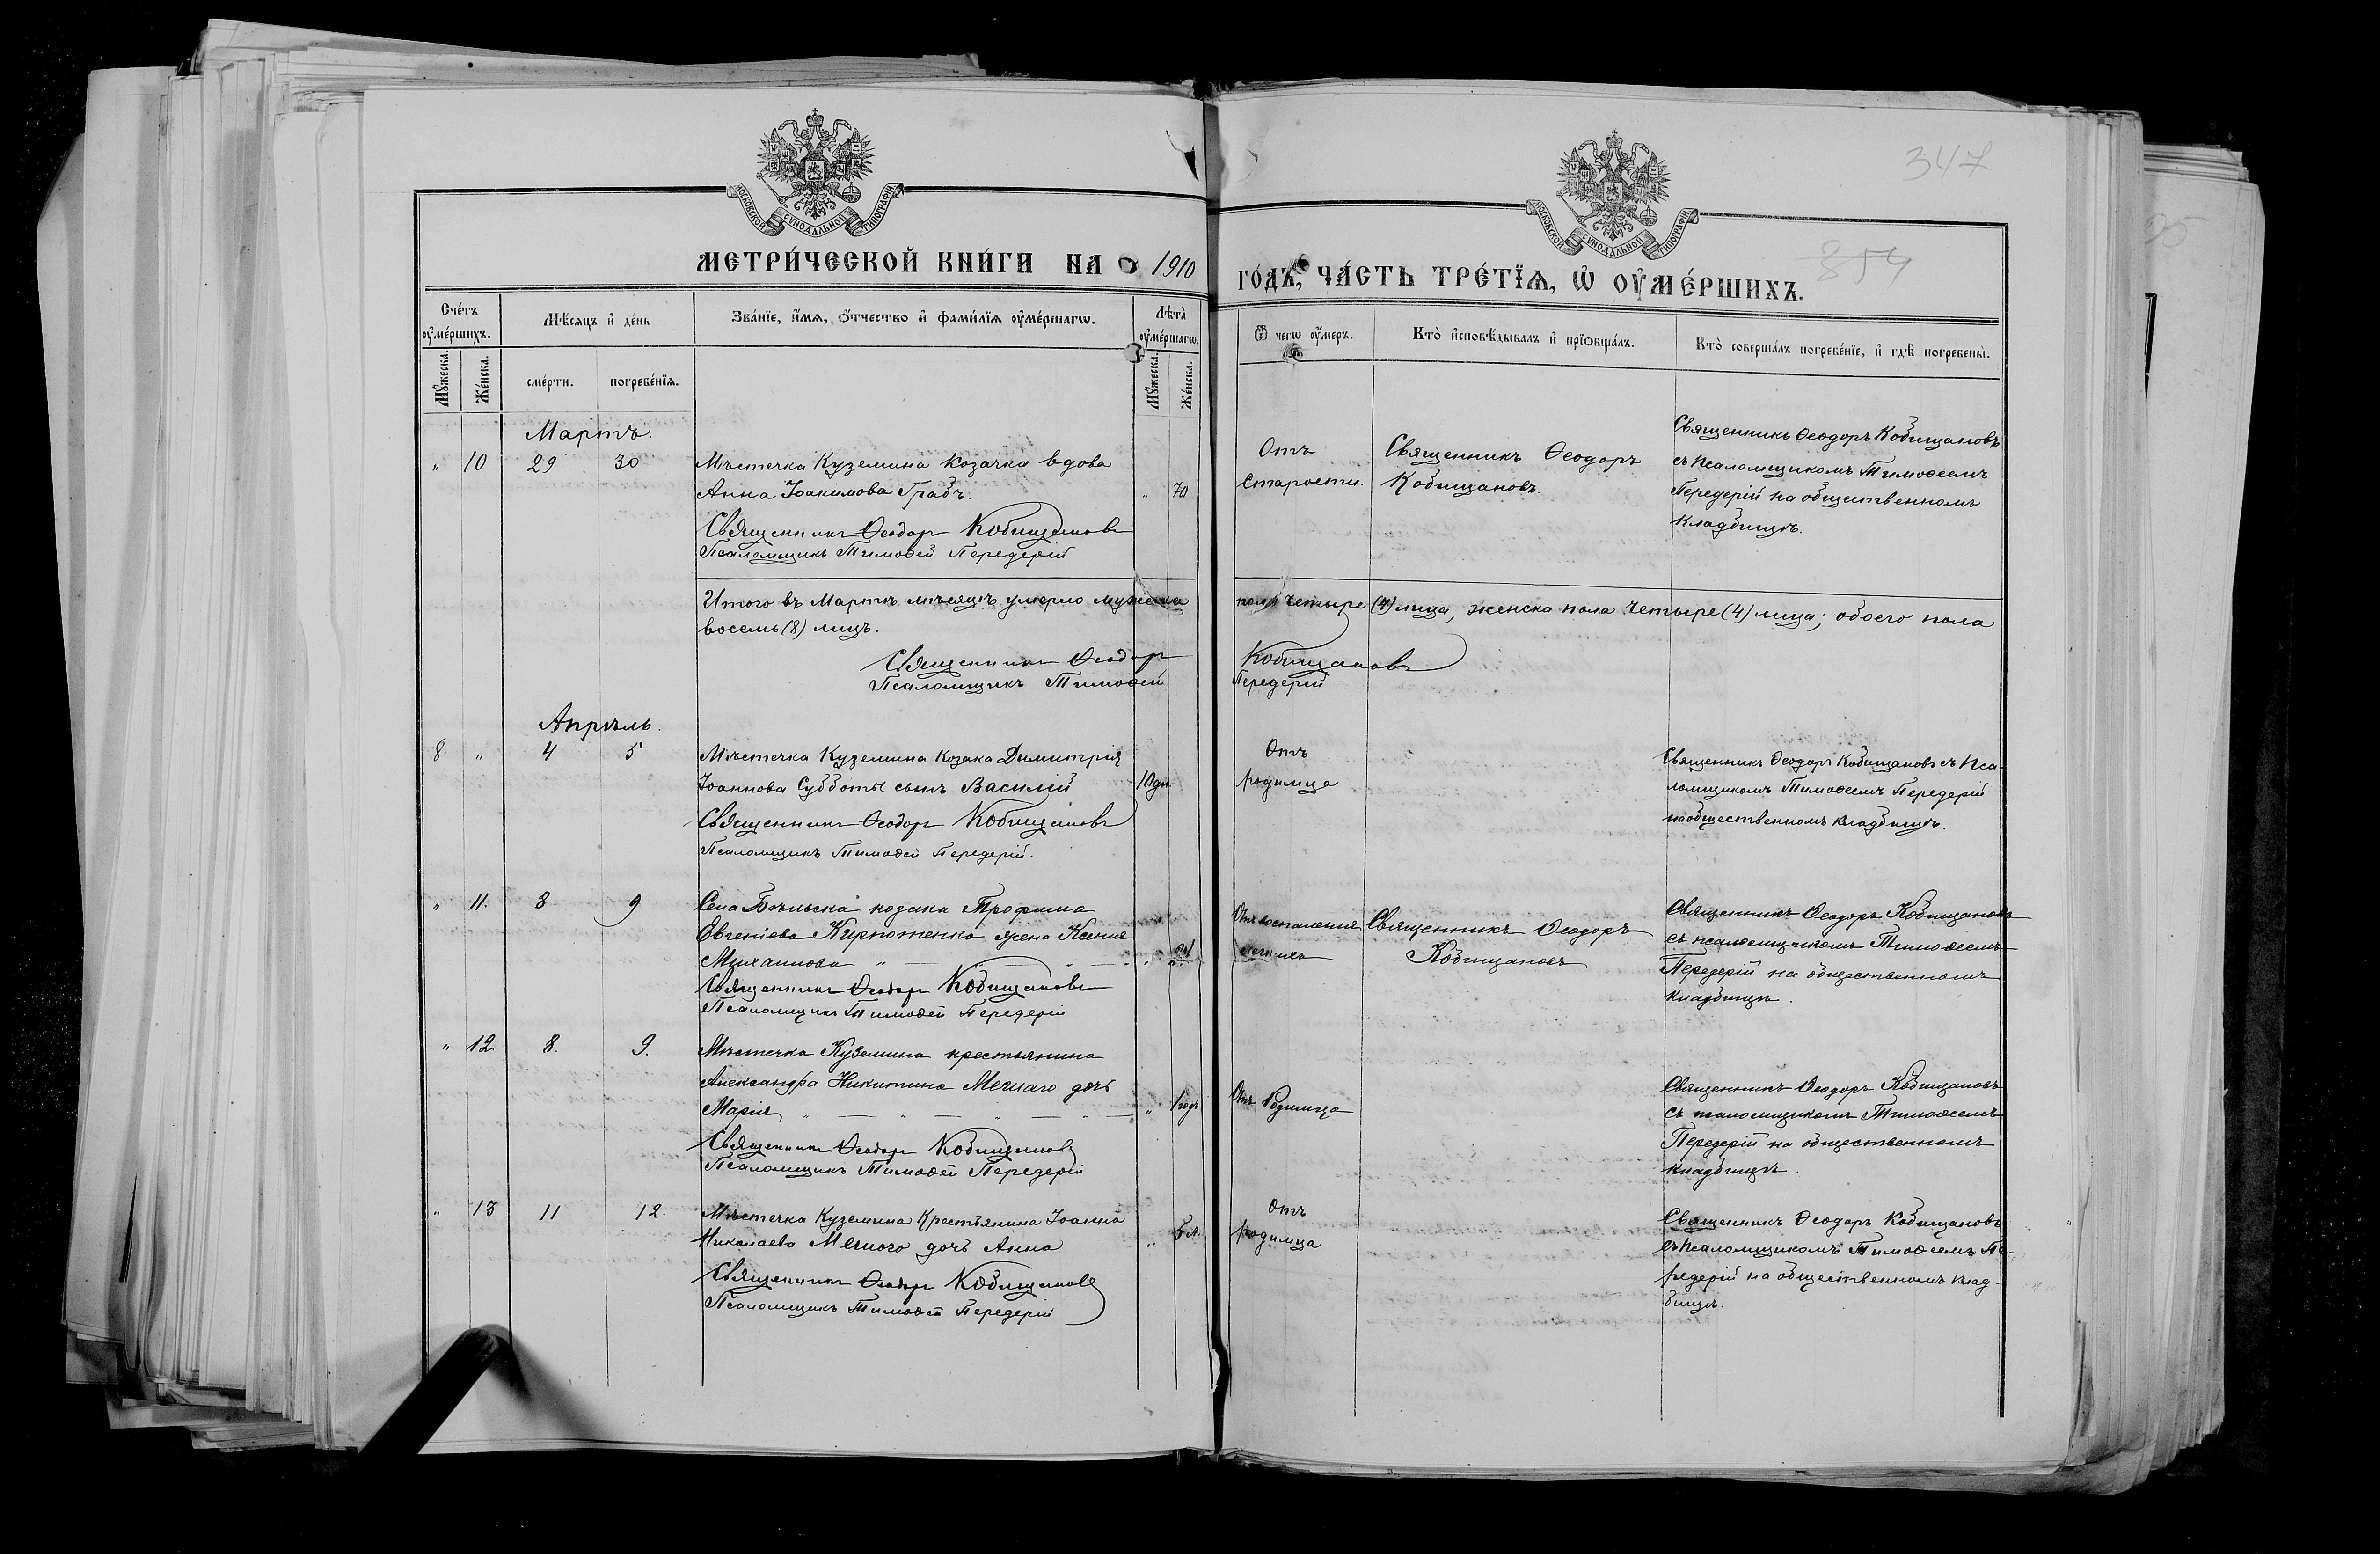 347
354
МОСКОВСКОЙ СѴНОДАЛЬНОЙ ТИПОГРАФІИ
МОСКОВСКОЙ СѴНОДАЛЬНОЙ ТИПОГРАФІИ
МЕТРИ́ЧЕСКОЙ КНИ́ГИ НА 1910
ГО́ДЪ, ЧА́СТЬ ТРЕ́ТЇѦ, Ѡ҆ ОУ҆МЕ́РШИХЪ.
Сче́тъ оу҆ме́ршихъ.
Мѣ́сѧцъ и҆ де́нь
Зва́нїе, и҆́мѧ, ѻ҆́тчество и҆ фами́лїѧ оу҆ме́ршагѡ.
Лѣта̀ оу҆ме́ршагѡ.
Ѿ чегѡ̀ оу҆́меръ.
Кто̀ и҆сповѣ́дывалъ и҆ прїѡбща́лъ.
Кто̀ соверша́лъ погребе́нїе, и҆ гдѣ̀ погребены̀.
Мꙋ́жеска.
Же́нска.
сме́рти.
погребе́нїѧ.
Мꙋ́жеска.
Же́нска.
Мартъ.
„ 10 29 30 Мѣстечка Куземина козачка вдова
Анна Іоакимова Грабъ. „ 70
Священникъ Ѳеодоръ Кобищановъ
Псаломщикъ Тимоѳей Передерій
Отъ
старости.
Священникъ Ѳеодоръ
Кобищановъ.
Священникъ Ѳеодоръ Кобищановъ
съ псаломщикомъ Тимоѳеемъ
Передерій на общественномъ
кладбищѣ.
Итого въ Мартѣ мѣсяцѣ умерло мужеска пола четыре (4) лица, женска пола четыре (4) лица; обоего пола
восемь (8) лицъ.
Священникъ Ѳеодоръ Кобищановъ
Псаломщикъ Тимоѳей Передерій
Апрѣль.
8 „ 4 5 Мѣстечка Куземина козака Димитрія
Іоаннова Субботы сынъ Василій 10 дн.
Священникъ Ѳеодоръ Кобищановъ
Псаломщикъ Тимоѳей Передерій.
Отъ
родимца
Священникъ Ѳеодоръ Кобищановъ съ пса-
ломщикомъ Тимоѳеемъ Передерій
на общественномъ кладбищѣ.
„ 11. 8 9 Села Бѣльска козака Трофима
Евгеніева жена Ксенія
Михаилова „
Священникъ Ѳеодоръ Кобищановъ
Псаломщикъ Тимоѳей Передерій
Отъ воспаленія
легкихъ
Священникъ Ѳеодоръ
Кобищановъ
Священникъ Ѳеодоръ Кобищановъ
съ псаломщикомъ Тимоѳеемъ
Передерій на общественномъ
кладбищѣ.
„ 12 8. 9. Мѣстечка Куземина крестьянина
Александра Никитина дочь
Марія „ „ „ „ 1 годъ
Священникъ Ѳеодоръ Кобищановъ
Псаломщикъ Тимоѳей Передерій
Отъ Родимца
Священникъ Ѳеодоръ Кобищановъ
съ псаломщикомъ Тимоѳеемъ
Передерій на общественномъ
кладбищѣ.
„ 13 11 12. Мѣстечка Куземина крестьянина Іоанна
Николаева дочь Анна „ 5 л.
Священникъ Ѳеодоръ Кобищановъ
Псаломщикъ Тимоѳей Передерій
Отъ
родимца
Священникъ Ѳеодоръ Кобищановъ
съ псаломщикомъ Тимоѳеемъ Пе-
редерій на общественномъ клад-
бищѣ.